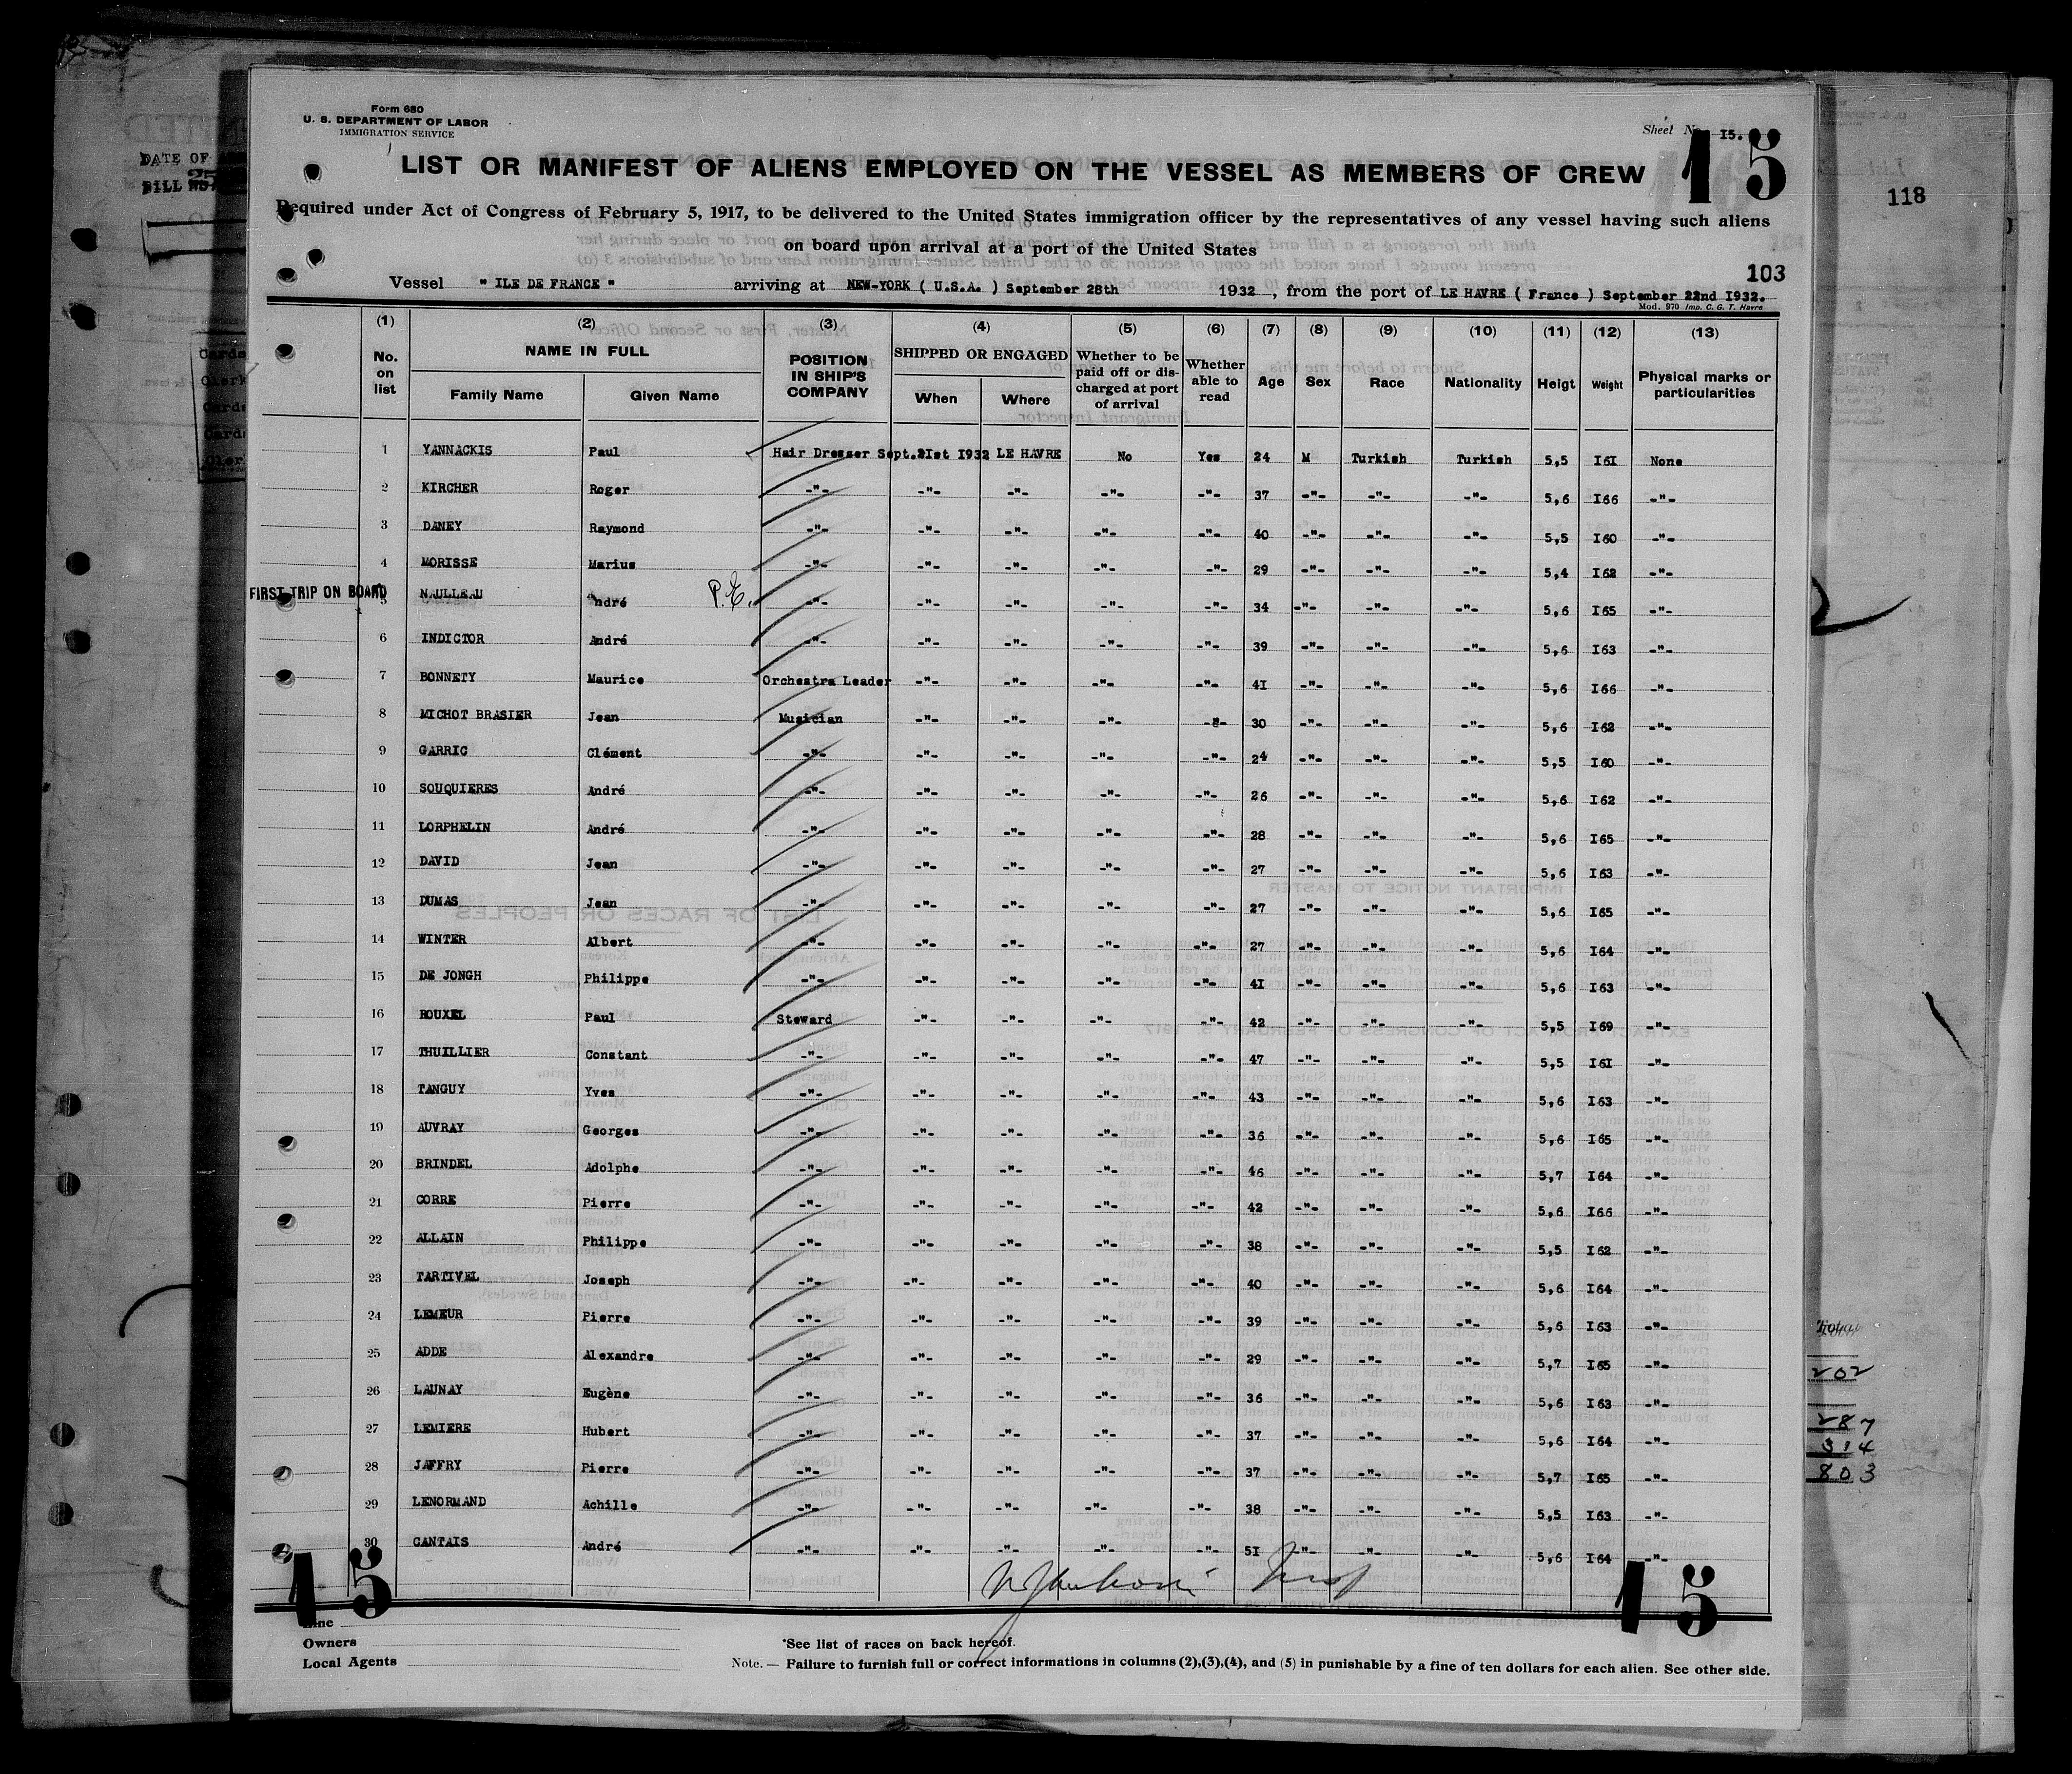 Form 680
U. S. DEPARTMENT OF LABOR
IMMIGRATION SERVICE
Sheet N. I5.
15
LIST OR MANIFEST OF ALIENS EMPLOYED ON THE VESSEL AS MEMBERS OF CREW
118
Required under Act of Congress of February 5, 1917, to be delivered to the United States immigration officer by the representatives of any vessel having such aliens
on board upon arrival at a port of the United States
103
Vessel " ILE DE FRANCE " arriving at NEW-YORK ( U.S.A. ) September 28th 1932 , from the port of LE HAVRE ( France ) September 22nd I932.
Mod. 970 Imp. C. G. T. Havre
(1) (2) (3) (4) (5) (6) (7) (8) (9) (10) (11) (12) (13)
No. on list NAME IN FULL Family Name Given Name POSITION IN SHIP'S COMPANY SHIPPED OR ENGAGED When Where Whether to be paid off or discharged at port of arrival Whether able to read Age Sex Race Nationality Heigt Weight Physical marks or particularities
1 YANNACKIS Paul Hair Dresser Sept.2Ist I932 LE HAVRE No Yes 24 M Turkish Turkish 5,5 I6I None
2 KIRCHER Roger -"- -"- -"- -"- -"- 37 -"- -"- -"- 5,6 I66 -"-
3 DANEY Raymond -"- -"- -"- -"- -"- 40 -"- -"- -"- 5,5 I60 -"-
4 MORISSE Marius -"- -"- -"- -"- -"- 29 -"- -"- -"- 5,4 I62 -"-
FIRST TRIP ON BOARD 5 NAULLEAU André P.E. -"- -"- -"- -"- -"- 34 -"- -"- -"- 5,6 I65 -"-
6 INDICTOR André -"- -"- -"- -"- -"- 39 -"- -"- -"- 5,6 I63 -"-
7 BONNETY Maurice Orchestra Leader -"- -"- -"- -"- 4I -"- -"- -"- 5,6 I66 -"-
8 MICHOT BRASIER Jean Musician -"- -"- -"- -"- 30 -"- -"- -"- 5,6 I62 -"-
9 GARRIC Clément -"- -"- -"- -"- -"- 24 -"- -"- -"- 5,5 I60 -"-
10 SOUQUIERES André -"- -"- -"- -"- -"- 26 -"- -"- -"- 5,6 I62 -"-
11 LORPHELIN André -"- -"- -"- -"- -"- 28 -"- -"- -"- 5,6 I65 -"-
12 DAVID Jean -"- -"- -"- -"- -"- 27 -"- -"- -"- 5,6 I63 -"-
13 DUMAS Jean -"- -"- -"- -"- -"- 27 -"- -"- -"- 5,6 I65 -"-
14 WINTER Albert -"- -"- -"- -"- -"- 27 -"- -"- -"- 5,6 I64 -"-
15 DE JONGH Philippe -"- -"- -"- -"- -"- 4I -"- -"- -"- 5,6 I63 -"-
16 ROUXEL Paul Steward -"- -"- -"- -"- 42 -"- -"- -"- 5,5 I69 -"-
17 THUILLIER Constant -"- -"- -"- -"- -"- 47 -"- -"- -"- 5,5 I6I -"-
18 TANGUY Yves -"- -"- -"- -"- -"- 43 -"- -"- -"- 5,6 I63 -"-
19 AUVRAY Georges -"- -"- -"- -"- -"- 36 -"- -"- -"- 5,6 I65 -"-
20 BRINDEL Adolphe -"- -"- -"- -"- -"- 46 -"- -"- -"- 5,7 I64 -"-
21 CORRE Pierre -"- -"- -"- -"- -"- 42 -"- -"- -"- 5,6 I66 -"-
22 ALLAIN Philippe -"- -"- -"- -"- -"- 38 -"- -"- -"- 5,5 I62 -"-
23 TARTIVEL Joseph -"- -"- -"- -"- -"- 40 -"- -"- -"- 5,6 I64 -"-
24 LEMEUR Pierre -"- -"- -"- -"- -"- 39 -"- -"- -"- 5,6 I63 -"-
25 ADDE Alexandre -"- -"- -"- -"- -"- 29 -"- -"- -"- 5,7 I65 -"-
26 LAUNAY Eugène -"- -"- -"- -"- -"- 36 -"- -"- -"- 5,6 I63 -"-
27 LEMIERE Hubert -"- -"- -"- -"- -"- 37 -"- -"- -"- 5,6 I64 -"-
28 JAFFRY Pierre -"- -"- -"- -"- -"- 37 -"- -"- -"- 5,7 I65 -"-
29 LENORMAND Achille -"- -"- -"- -"- -"- 38 -"- -"- -"- 5,5 I63 -"-
30 CANTAIS André -"- -"- -"- -"- -"- 5I -"- -"- -"- 5,6 I64 -"-
202
287
314
803
15 15
Line
Owners
Local Agents
*See list of races on back hereof.
Note. — Failure to furnish full or correct informations in columns (2),(3),(4), and (5) in punishable by a fine of ten dollars for each alien. See other side.
DATE OF
BILL NO